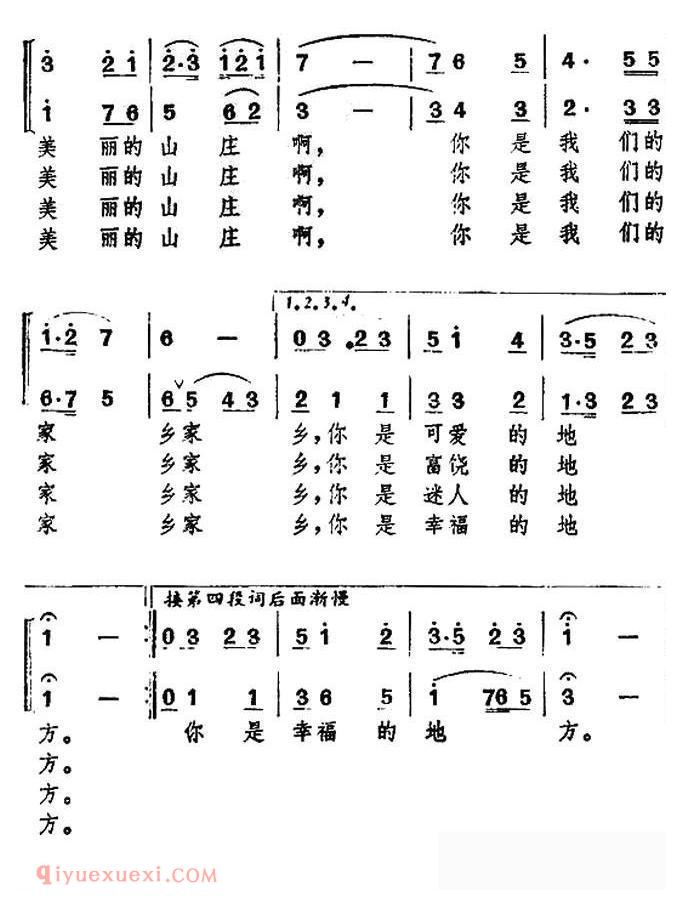 3 2 1 | 2·3 1 2 1 | 7 — | 7 6 5 | 4· 5 5
1 7 6 | 5 6 2 | 3 — | 3 4 3 | 2· 3 3
美 丽的 山 庄 啊， 你 是 我 们的
美 丽的 山 庄 啊， 你 是 我 们的
美 丽的 山 庄 啊， 你 是 我 们的
美 丽的 山 庄 啊， 你 是 我 们的
1.2.3.4.
1·2 7 | 6 — | 0 3 . 2 3 | 5 1 4 | 3·5 2 3
6·7 5 | 6 5 4 3 | 2 1 1 | 3 3 2 | 1·3 2 3
家 乡家 乡，你 是 可爱 的 地
家 乡家 乡，你 是 富饶 的 地
家 乡家 乡，你 是 迷人 的 地
家 乡家 乡，你 是 幸福 的 地
接第四段词后面渐慢
1 — :| 0 3 2 3 | 5 1 2 | 3·5 2 3 | 1 —
1 — :| 0 1 1 | 3 6 5 | 1 7 6 5 | 3 —
方。 你 是 幸福 的 地 方。
方。
方。
方。
qiyuexuexi.com@